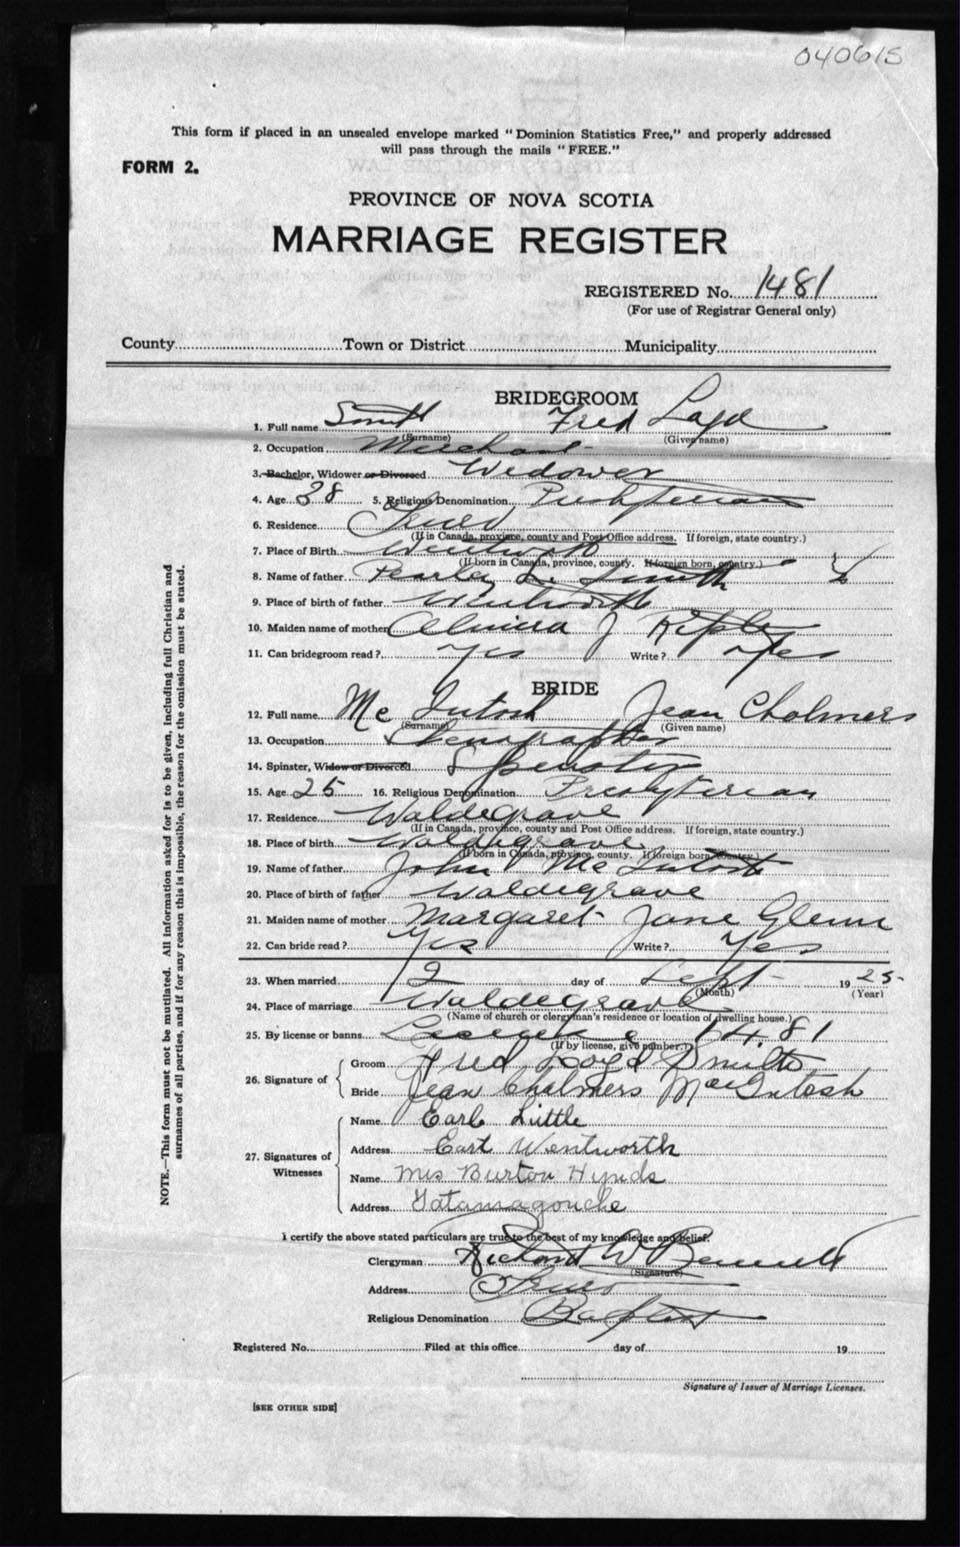 040615
This form if placed in an unsealed envelope marked "Dominion Statistics Free," and properly addressed
will pass through the mails "FREE."
FORM 2.
PROVINCE OF NOVA SCOTIA
MARRIAGE REGISTER
REGISTERED No. 1481
(For use of Registrar General only)
County Town or District Municipality
BRIDEGROOM
1. Full name Smith Fred Loyd
(Surname) (Given name)
2. Occupation Merchant
3. Bachelor, Widower or Divorced Widower
4. Age 38 5. Religious Denomination Presbyterian
6. Residence Truro
(If in Canada, province, county and Post Office address. If foreign, state country.)
7. Place of Birth Wentworth
(If born in Canada, province, county. If foreign born, country.)
8. Name of father Pearley L. Smith
9. Place of birth of father Wentworth
10. Maiden name of mother Almira J
11. Can bridegroom read? Yes Write? Yes
BRIDE
12. Full name Mc Intosh Jean Chalmers
(Surname) (Given name)
13. Occupation Stenographer
14. Spinster, Widow or Divorced Spinster
15. Age 25 16. Religious Denomination Presbyterian
17. Residence Waldegrave
(If in Canada, province, county and Post Office address. If foreign, state country.)
18. Place of birth Waldegrave
(If born in Canada, province, county. If foreign born, country.)
19. Name of father John McIntosh
20. Place of birth of father Waldegrave
21. Maiden name of mother Margaret Jane Glenn
22. Can bride read? Yes Write? Yes
23. When married 12 day of Sept 1925
(Month) (Year)
24. Place of marriage Waldegrave
(Name of church or clergyman's residence or location of dwelling house.)
25. By license or banns License 1481
(If by license, give number.)
26. Signature of
Groom Fred Loyd Smith
Bride Jean Chalmers MacIntosh
27. Signatures of Witnesses
Name Earle Little
Address East Wentworth
Name Mrs Burton Hynds
Address Tatamagouche
I certify the above stated particulars are true to the best of my knowledge and belief.
Clergyman Richard W Bennett
(Signature)
Address Truro
Religious Denomination Baptist
Registered No. Filed at this office day of 19
Signature of Issuer of Marriage Licenses.
[SEE OTHER SIDE]
NOTE.—This form must not be mutilated. All information asked for is to be given, including full Christian and
surnames of all parties, and if for any reason this is impossible, the reason for the omission must be stated.